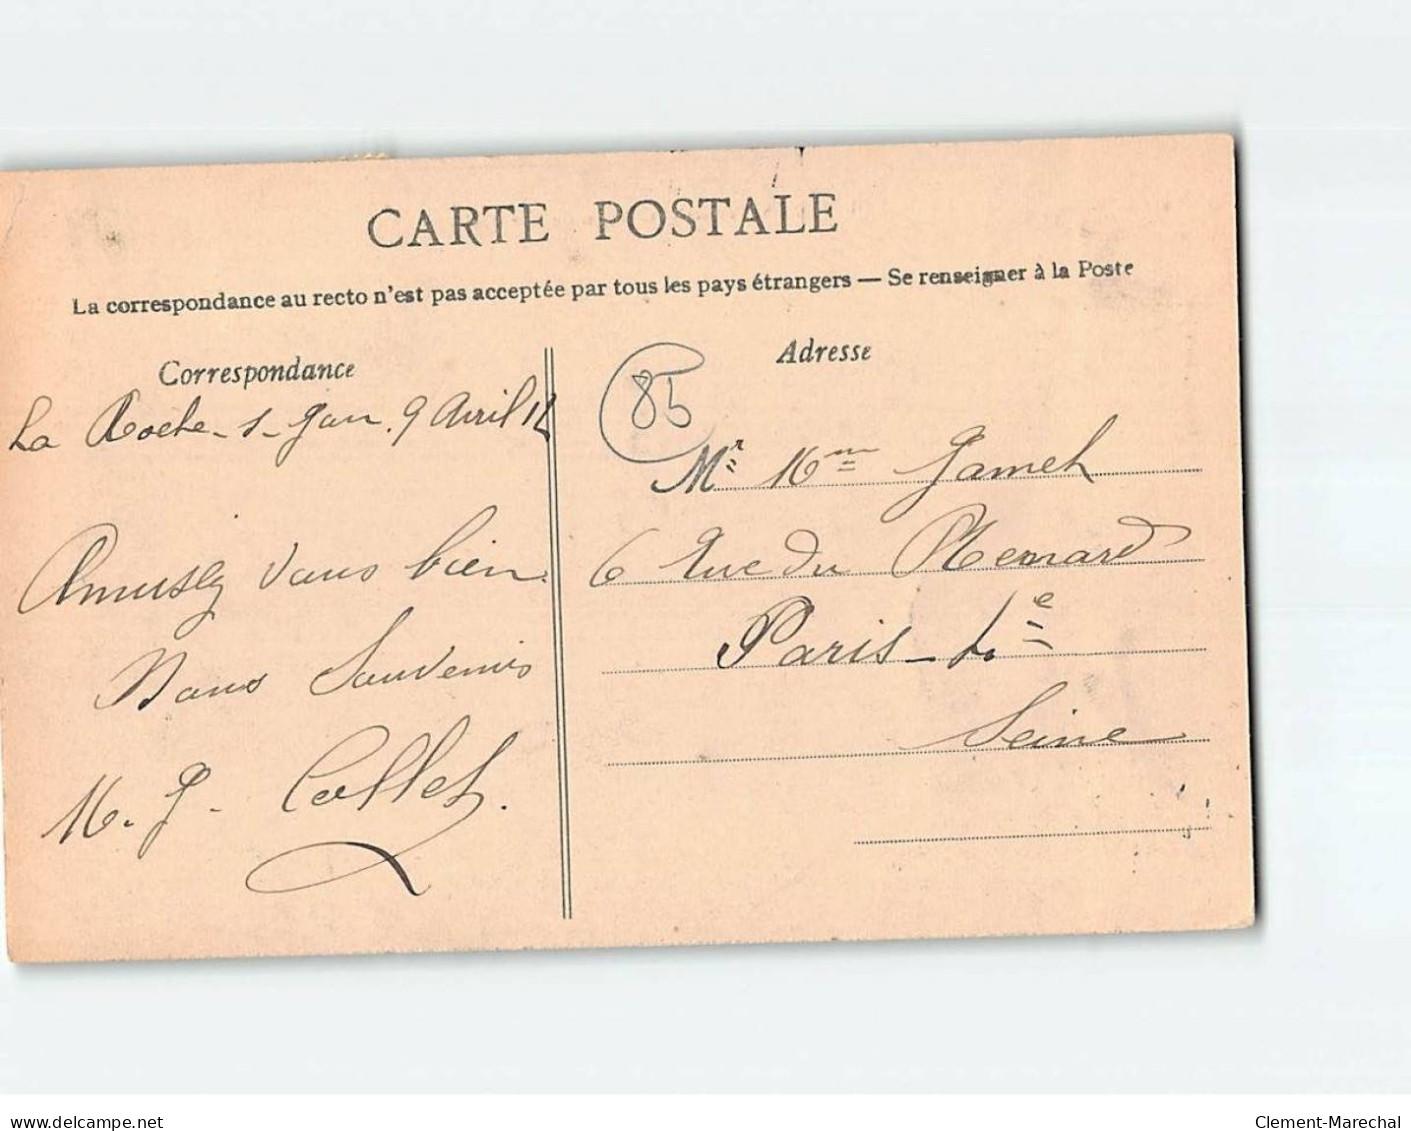 CARTE POSTALE
La correspondance au recto n'est pas acceptée par tous les pays étrangers — Se renseigner à la Poste
Correspondance
La Roche-s-Yon. 9 Avril 12
Amusez vous bien
Bons Souvenirs
M. J. Collet.
Adresse
85
Mr Mme Jamet
6 Rue du Renard
Paris - 4e
Seine
www.delcampe.net
Clement-Marechal